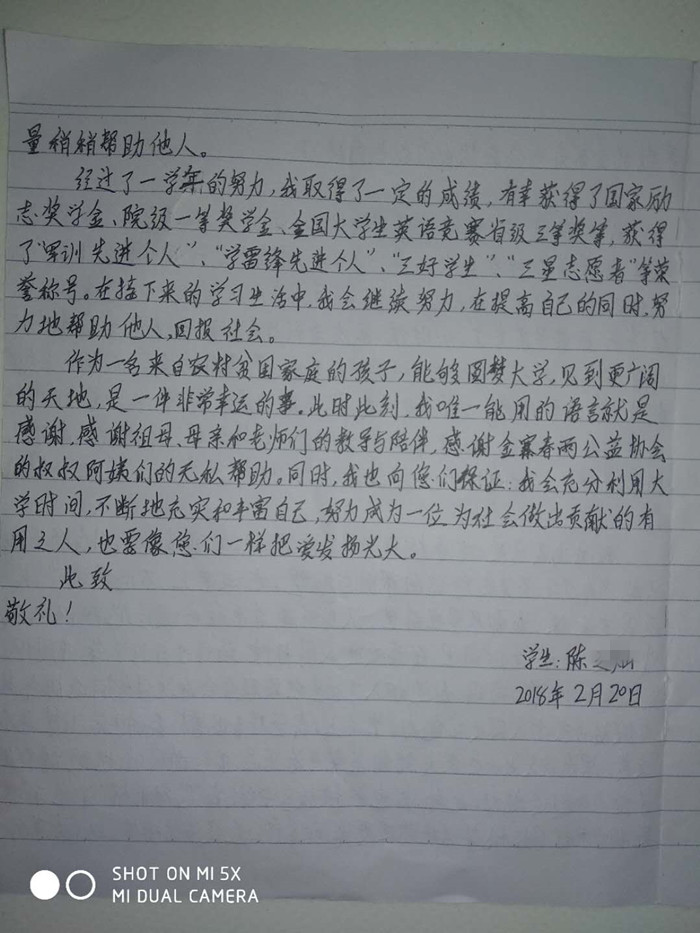 量稍稍帮助他人。
经过了一学年的努力,我取得了一定的成绩,有幸获得了国家励
志奖学金、院级一等奖学金、全国大学生英语竞赛省级三等奖等,获得
了“军训先进个人”、“学雷锋先进个人”、“三好学生”、“三星志愿者”等荣
誉称号。在接下来的学习生活中,我会继续努力,在提高自己的同时,努
力地帮助他人,回报社会。
作为一名来自农村贫困家庭的孩子,能够圆梦大学,见到更广阔
的天地,是一件非常幸运的事。此时此刻,我唯一能用的语言就是
感谢,感谢祖母、母亲和老师们的教导与陪伴,感谢金寨春雨公益协会
的叔叔阿姨们的无私帮助。同时,我也向您们保证:我会充分利用大
学时间,不断地充实和丰富自己,努力成为一位为社会做出贡献的有
用之人,也要像您们一样把爱发扬光大。
此致
敬礼!
学生:陈
2018年2月20日
SHOT ON MI 5X
MI DUAL CAMERA